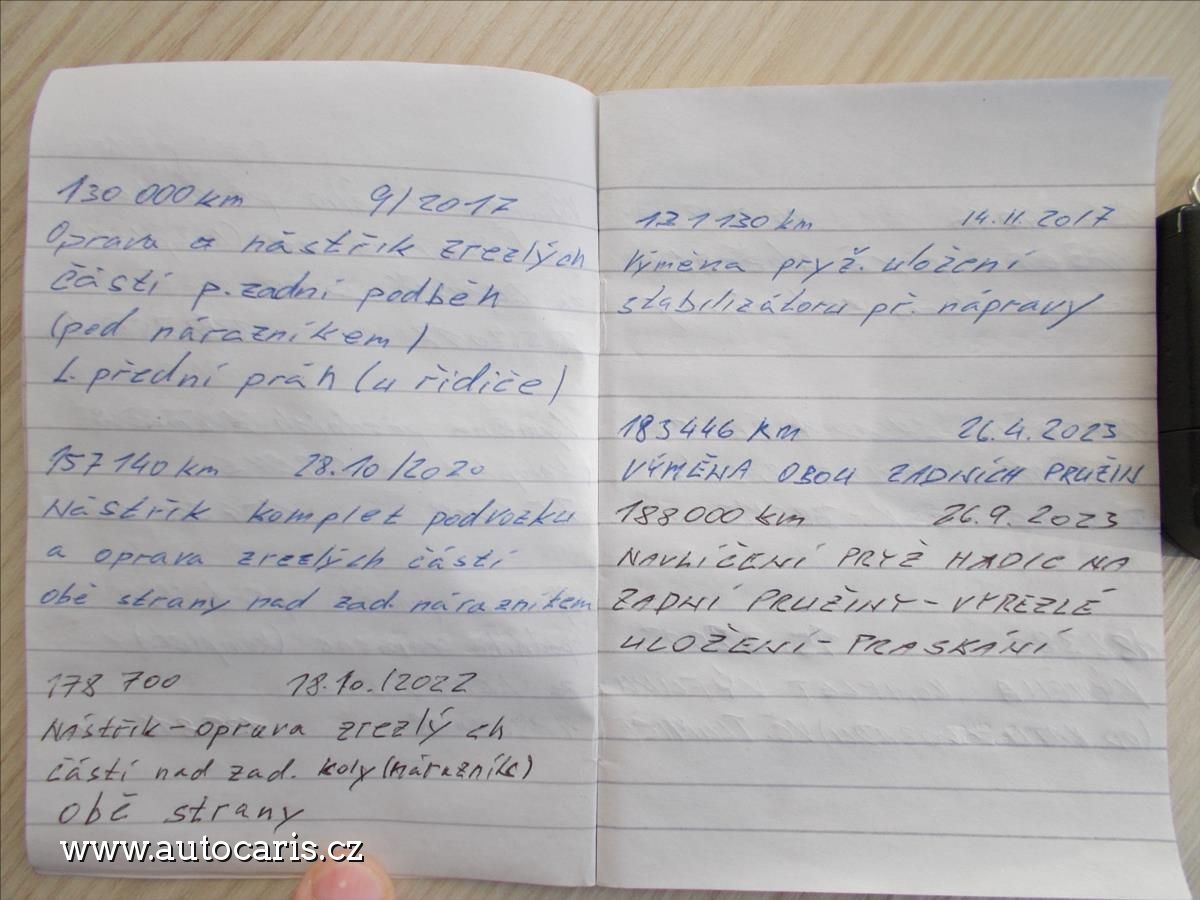 130 000 km 9/2017
Oprava a nástřik zrezlých
částí p. zadní podběh
(pod nárazníkem)
L. přední práh (u řidiče)
157 140 km 28.10/2020
Nástřik komplet podvozku
a oprava zrezlých částí
obě strany nad zad. nárazníkem
178 700 18.10./2022
Nástřik - oprava zrezlých
částí nad zad. koly (nárazník)
obě strany
131 130 km 14.11.2017
Výměna pryž. uložení
stabilizátoru př. nápravy
183446 km 26.4.2023
VÝMĚNA OBOU ZADNÍCH PRUŽIN
188000 km 26.9.2023
NAVLÍČENÍ PRYŽ HADIC NA
ZADNÍ PRUŽINY - VYREZLÉ
ULOŽENÍ - PRASKÁNÍ
www.autocaris.cz